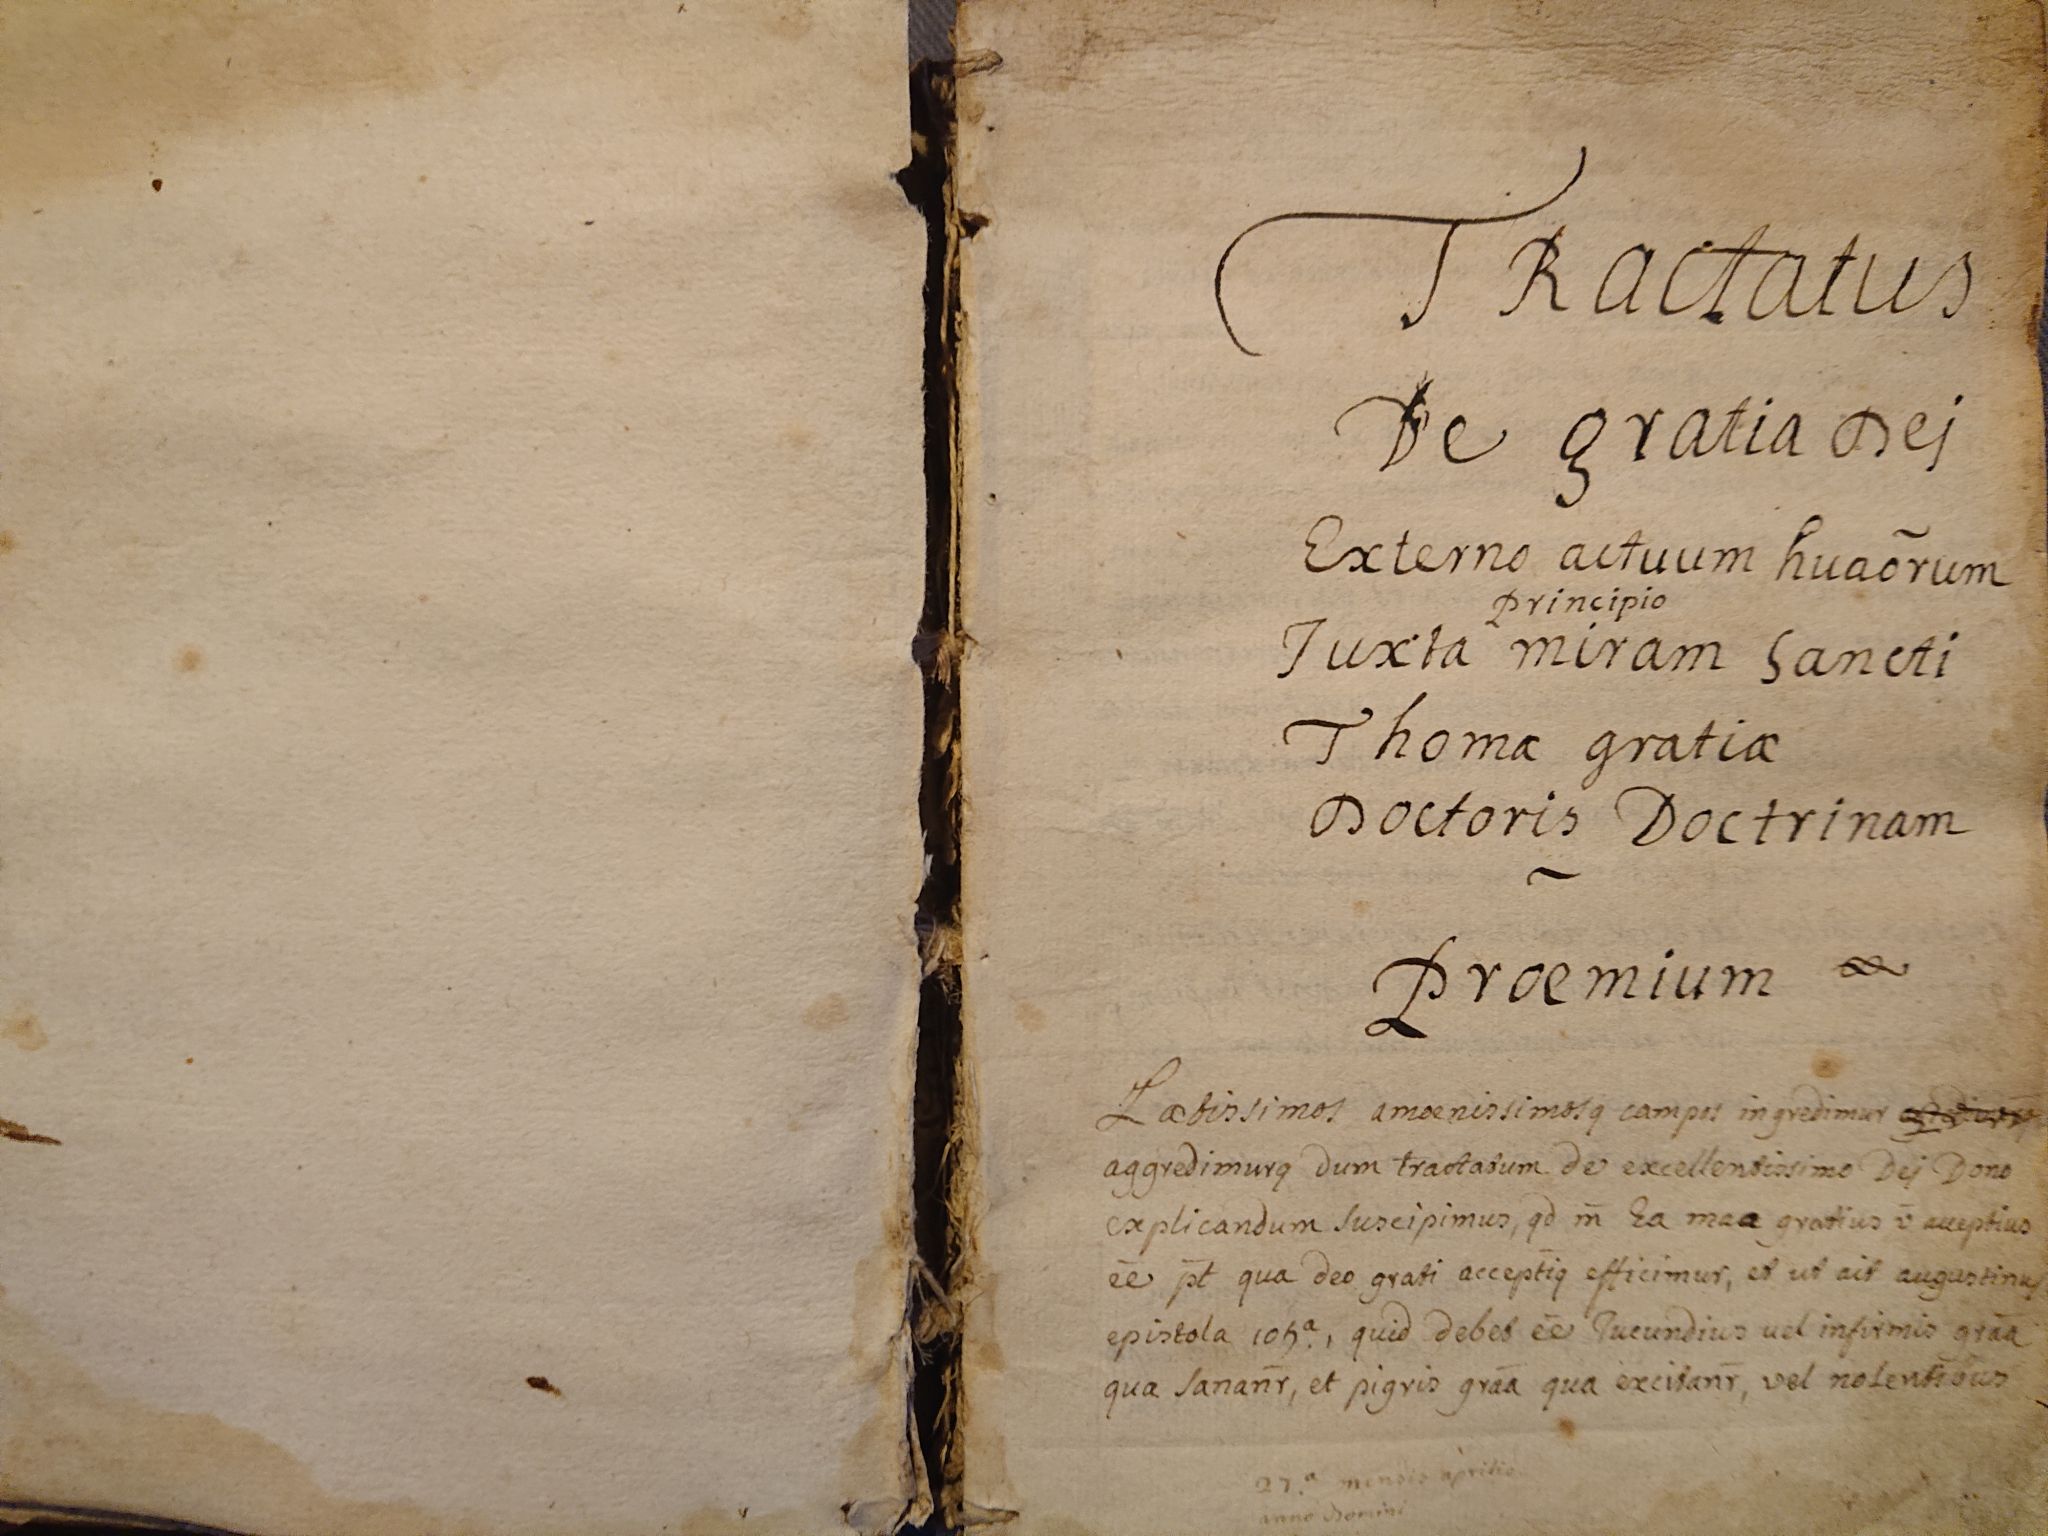 Tractatus
De gratia Dej
Externo actuum huaõrum
principio
Juxta miram Sancti
Thomæ gratiæ
Doctoris Doctrinam
Proemium
Lætissimos amoenissimosq campos ingredimur
aggredimurq dum tractatum de excellentissimo Dej Dono
explicandum suscipimus, qd m̄ Ea maa gratius v̄ aceptius
ēe p̄t qua deo grati acceptiq efficimur, et ut ait augustinus
epistola 105ª, quid debet ēe Jucundius vel infirmis grāa
qua sanañr, et pigris grāa qua excitañr, vel nolentibus
27.ª mensis aprilis
anno Domini